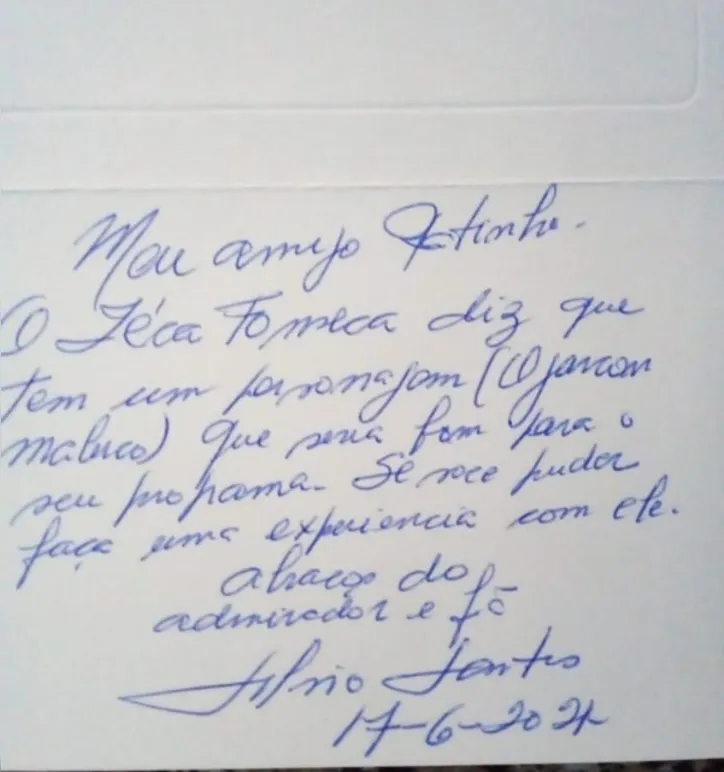 Meu amigo Ratinho.
O Zéca Fonseca diz que
tem um personagem (O garcon
maluco) que seria bom para o
seu programa. Se voce puder
faça uma experiencia com ele.
abraços do
admirador e fã
Silvio Santos
17-6-2021